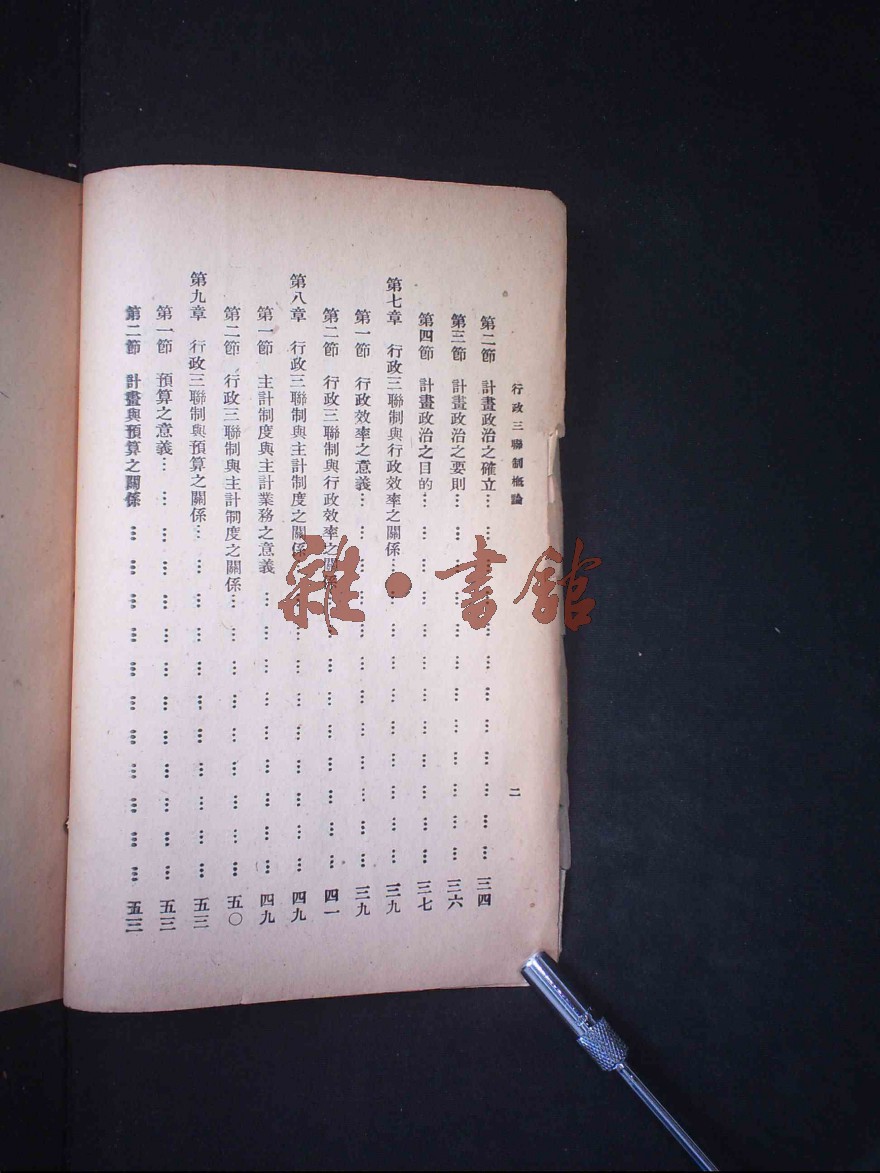 行政三聯制概論
二
第二節 計畫政治之確立……………………………三四
第三節 計畫政治之要則……………………………三六
第四節 計畫政治之目的……………………………三七
第七章 行政三聯制與行政效率之關係……………………………三九
第一節 行政效率之意義……………………………三九
第二節 行政三聯制與行政效率之關係……………………………四一
第八章 行政三聯制與主計制度之關係……………………………四九
第一節 主計制度與主計業務之意義……………………………四九
第二節 行政三聯制與主計制度之關係……………………………五〇
第九章 行政三聯制與預算之關係……………………………五三
第一節 預算之意義……………………………五三
第二節 計畫與預算之關係……………………………五三
雜・書館